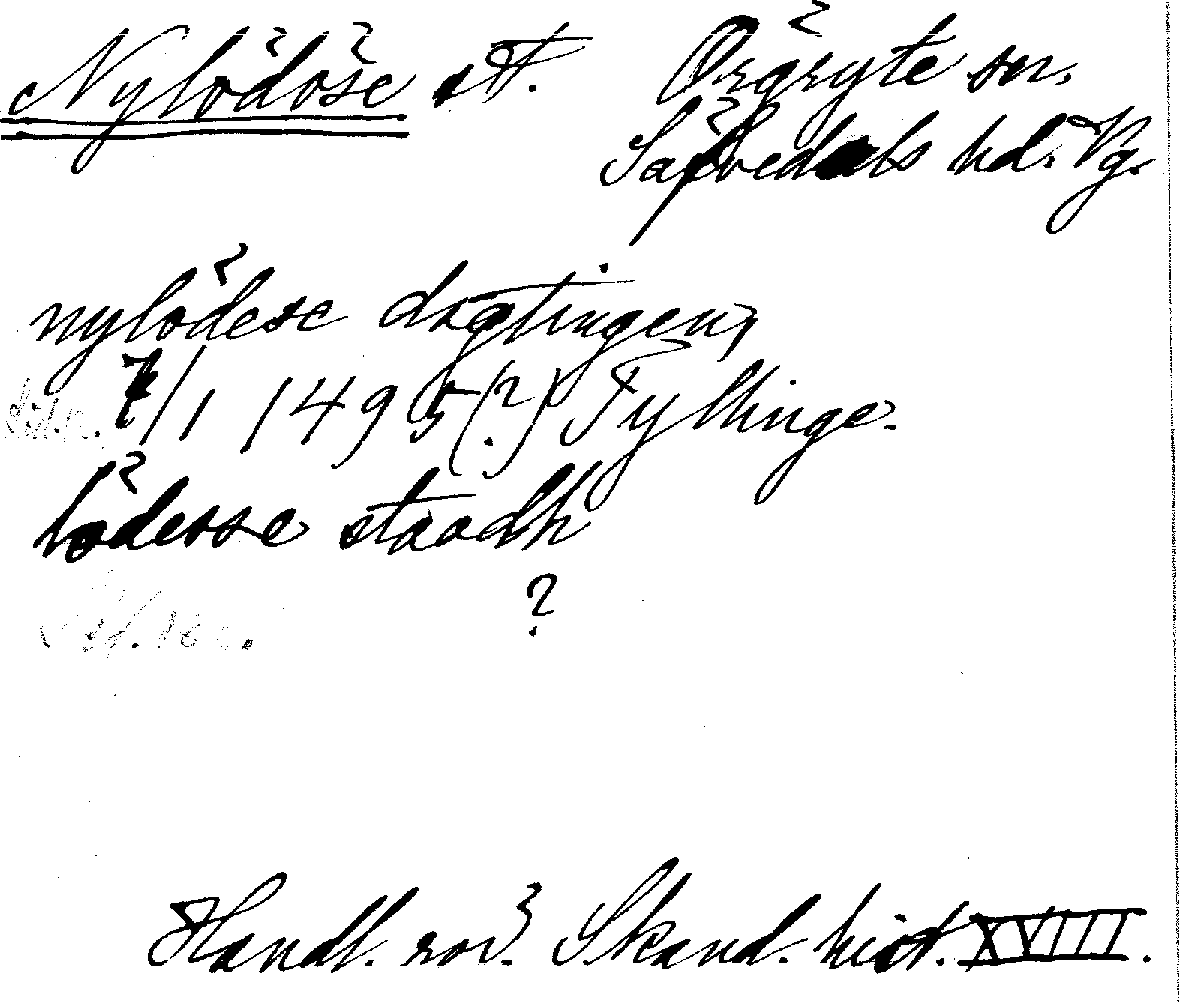 Nylödöse st. Örgryte sn.
Sävedals hd. Vg.
nylödese dagtingen,
7/1 1495(?) Tyllinge.
lödesse staadh
?
Handl. rör. Skand. hist. XVIII.